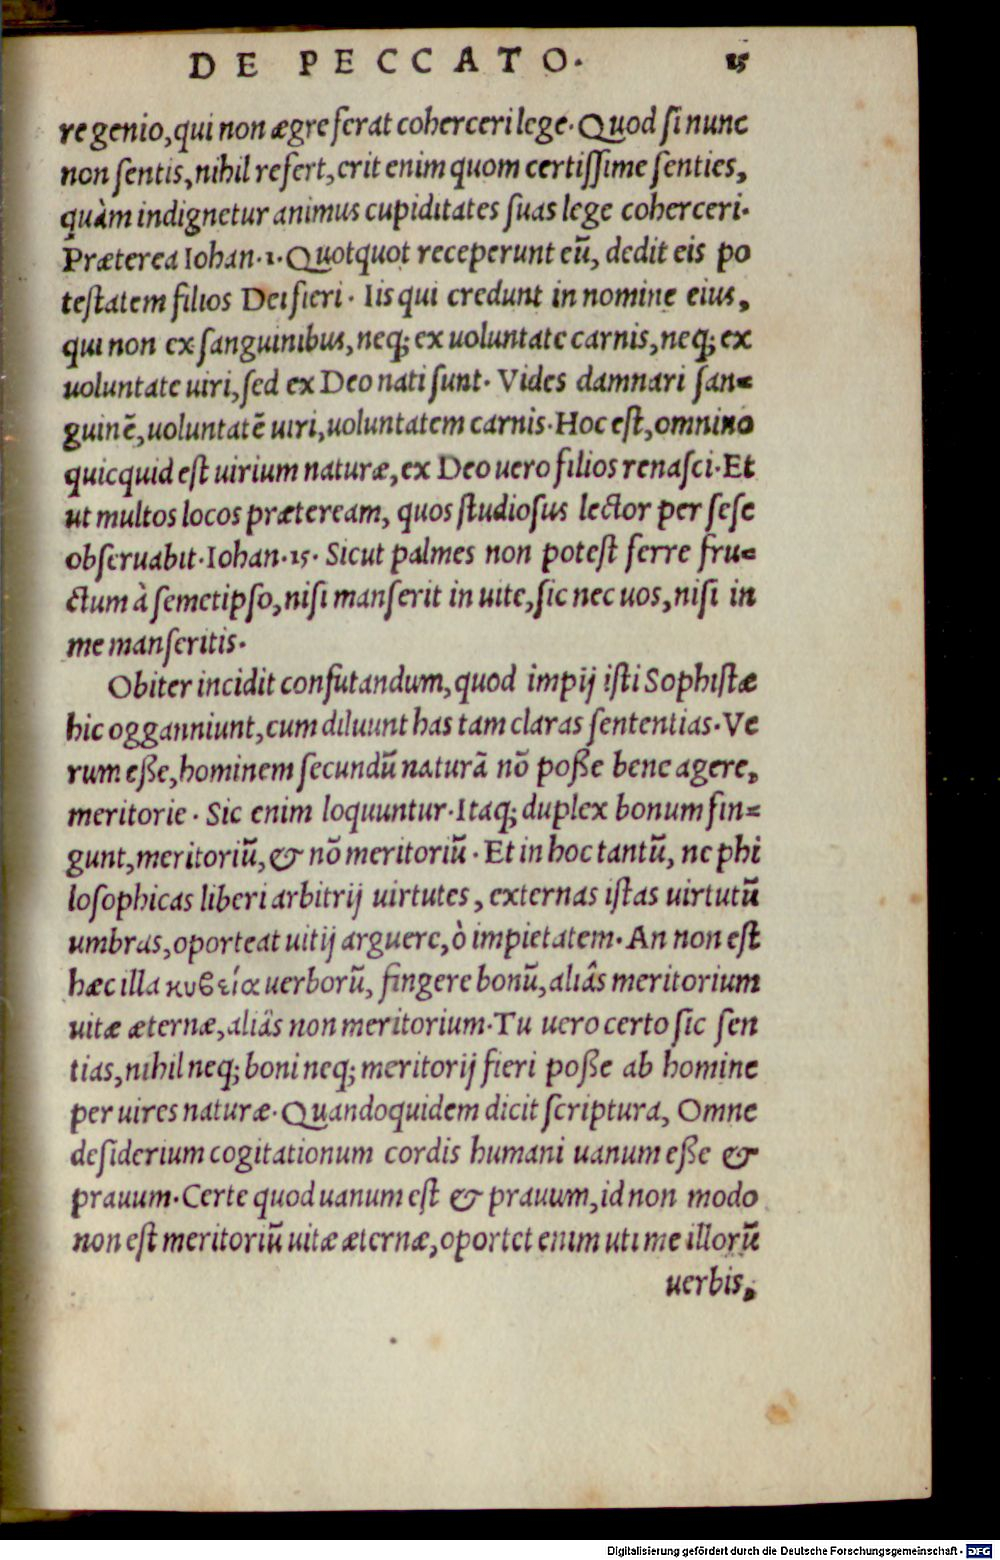 DE PECCATO. 15
re genio, qui non ægre ferat coherceri lege. Quod si nunc
non sentis, nihil refert, erit enim quom certissime senties,
quàm indignetur animus cupiditates suas lege coherceri.
Præterea Iohan. 1. Quotquot receperunt eū, dedit eis po
testatem filios Dei fieri. Iis qui credunt in nomine eius,
qui non ex sanguinibus, neq; ex uoluntate carnis, neq; ex
uoluntate uiri, sed ex Deo nati sunt. Vides damnari san=
guinē, uoluntatē uiri, uoluntatem carnis. Hoc est, omnino
quicquid est uirium naturæ, ex Deo uero filios renasci. Et
ut multos locos præteream, quos studiosus lector per sese
obseruabit. Iohan. 15. Sicut palmes non potest ferre fru=
ctum à semetipso, nisi manserit in uite, sic nec uos, nisi in
me manseritis.
Obiter incidit confutandum, quod impij isti Sophistæ
hic ogganniunt, cum diluunt has tam claras sententias. Ve
rum eße, hominem secundū naturā nō poße bene agere,
meritorie. Sic enim loquuntur. Itaq; duplex bonum fin=
gunt, meritoriū, & nō meritoriū. Et in hoc tantū, ne phi
losophicas liberi arbitrij uirtutes, externas istas uirtutū
umbras, oporteat uitij arguere, ò impietatem. An non est
hæc illa κυβεία uerborū, fingere bonū, aliâs meritorium
uitæ æternæ, aliâs non meritorium. Tu uero certo sic sen
tias, nihil neq; boni neq; meritorij fieri poße ab homine
per uires naturæ. Quandoquidem dicit scriptura, Omne
desiderium cogitationum cordis humani uanum eße &
prauum. Certe quod uanum est & prauum, id non modo
non est meritoriū uitæ æternæ, oportet enim uti me illorū
uerbis,
Digitalisierung gefördert durch die Deutsche Forschungsgemeinschaft - DFG